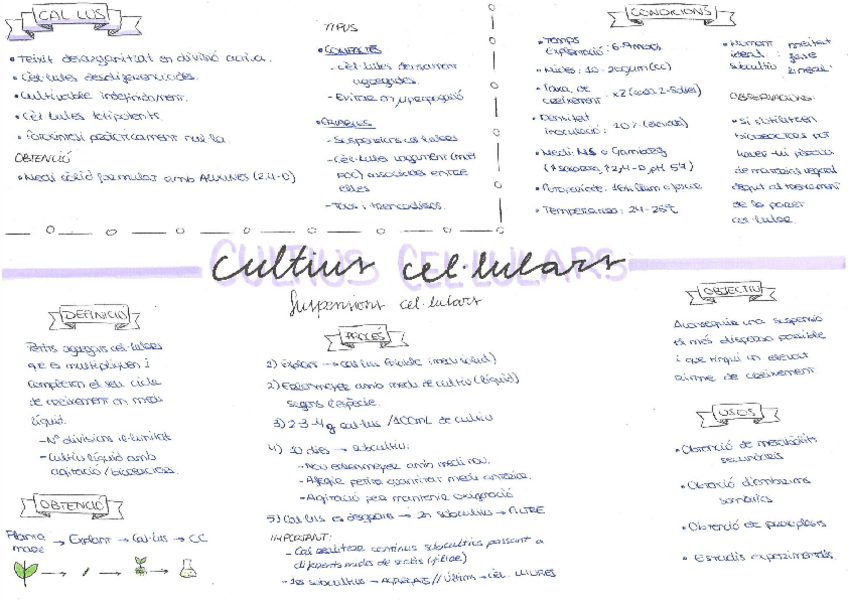 CAL·LUS
• Teixit desorganitzat en divisió activa.
• Cèl·lules desdiferenciades.
• Cultivable indefinidament.
• Cèl·lules totipotents.
• Fotosíntesi pràcticament nul·la.
OBTENCIÓ
• Medi sòlid formulat amb AUXINES (2,4-D)
TIPUS
• COMPACTES
- Cèl·lules densament agregades.
• FRIABLES
- Suspensions cel·lulars
- Cèl·lules
associades entre
elles
- Tous i trencadissos.
CONDICIONS
• Temps
explantació: 6-9 mesos
• Taxa de
creixement: x2
• Densitat
inoculació: 10%
• Medi: MS o Gamborg
• Temperatura: 24-25ºC
• Moment
ideal:
subcultiu
OBSERVACIONS:
• Si s'utilitzen
bioreactors pot
haver-hi
de
vegetal
degut al trencament
de la paret
cel·lular.
Cultius cel·lulars
CULTIUS CEL·LULARS
Suspensions cel·lulars
DEFINICIÓ
Petits agregats cel·lulars
que es multipliquen i
completen el seu cicle
de creixement en medi
líquid.
- Nº divisions il·limitat
- Cultiu líquid amb
agitació/bioreactors.
OBTENCIÓ
Planta mare → Explant → Cal·lus → CC
PROCÉS
1) Explant → cal·lus friable (medi sòlid)
2) Erlenmeyer amb medi de cultiu (líquid)
segons l'espècie.
3) 2-3-4g cal·lus /100mL de cultiu
4) 10 dies → subcultiu:
- Nou erlenmeyer amb medi nou.
- Afegir petita quantitat medi anterior.
- Agitació per mantenir oxigenació
5) Cal·lus es disgrega → 2n subcultiu → FILTRE
IMPORTANT:
- Cal realitzar continus subcultius passant a
diferents mides de
- 1rs subcultius → AGREGATS // Últims → cèl. LLIURES
OBJECTIU
Aconseguir una suspensió
el més dispersa possible
i que tingui un elevat
ritme de creixement
USOS
• Obtenció de metabòlits
secundaris
• Obtenció d'embrions
somàtics
• Obtenció de protoplasts
• Estudis experimentals